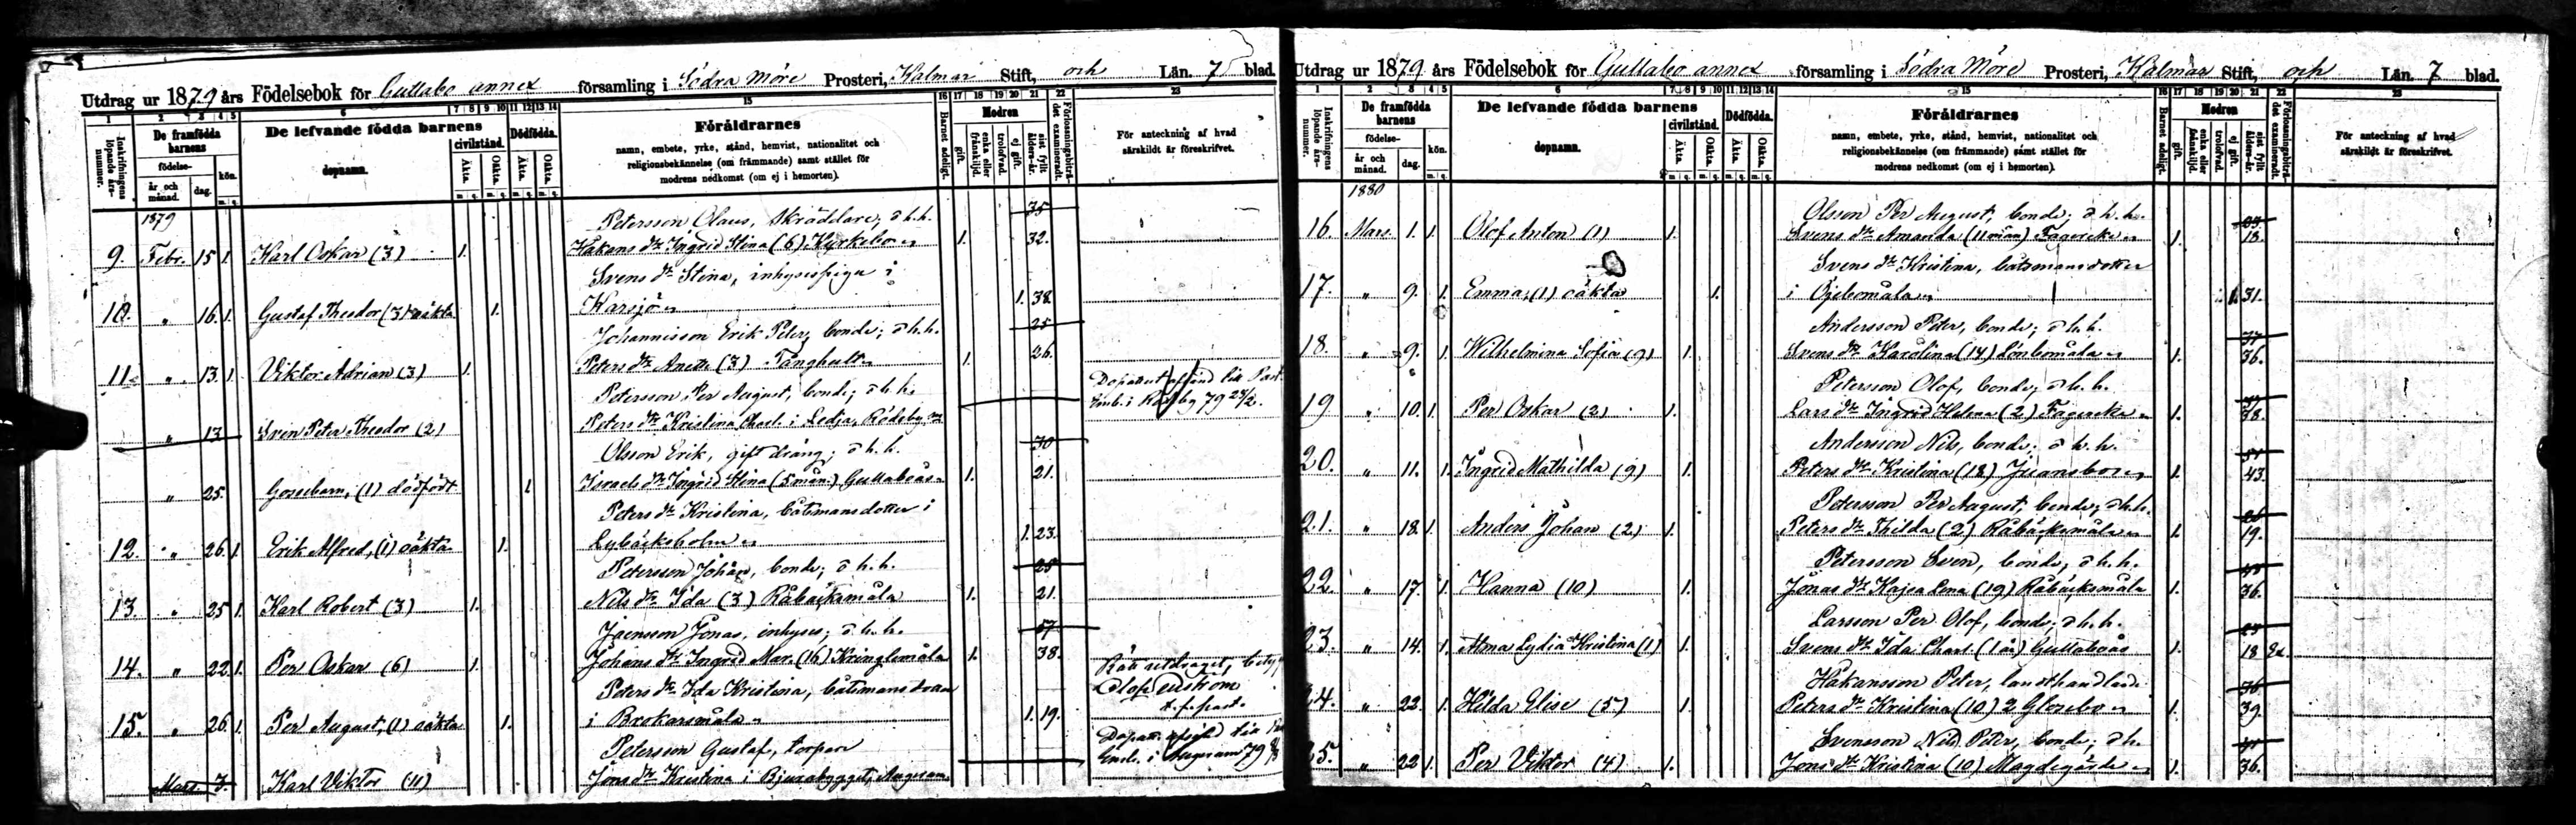 Utdrag ur 1879 års Födelsebok för Gullabo annex församling i Södra Möre Prosteri, Kalmar Stift, och Län. 7 blad.
1 2 3 4 5 6 7 8 9 10 11 12 13 14 15 16 17 18 19 20 21 22 23
Inskrifningens löpande års-nummer.
De framfödda barnens
födelse-
år och månad.
dag.
kön.
m q
De lefvande födda barnens
dopnamn.
civilstånd.
Äkta.
Oäkta.
Dödfödda.
Äkta.
Oäkta.
Föräldrarnes
namn, embete, yrke, stånd, hemvist, nationalitet och
religionsbekännelse (om främmande) samt stället för
modrens nedkomst (om ej i hemorten).
Barnet adeligt.
Modren
gift.
enka eller frånskild.
trolofvad.
ej gift.
sist fyllt ålders-år.
Förlossningsbiträdet examineradt.
För anteckning af hvad
särskildt är föreskrifvet.
1879
Petersson Olaus, skräddare, o h. h. 35
9. Febr. 15 1. Karl Oskar (3) 1. Håkans dr Ingrid Stina (6) Kyrkebo 1. 32.
Svens dr Stina, inhysespiga i
10. " 16. 1. Gustaf Theodor (3) oäkta 1. Karsjö 1. 38.
Johannisson Erik Peter, bonde; o h. h. 25
11. " 13. 1. Viktor Adrian (3) 1. Peters dr Anette (3) Långhult 1. 26.
Petersson Per August, bonde; o h. h.
" 13 Sven Peter Theodor (2) Peters dr Kristina Charl. i Ledja, Rödeby
Olsson Erik, gift dräng; o h. h. 30
" 25. Gossebarn, (1) dödfödt 1 Israels dr Ingrid Stina (5 mån.) Gullaboås 1. 21.
Peters dr Kristina, båtsmansdotter i
12. " 26. 1. Erik Alfred, (1) oäkta 1. Lybäcksholm 1. 23.
Petersson Johan, bonde; o h. h. 25
13. " 25 1. Karl Robert (3) 1. Nils dr Ida (3) Råbäcksmåla 1. 21.
Jaensson Jonas, inhyses; o h. h. 57
14. " 22. 1. Per Oskar (6) 1. Johans dr Ingrid Mar. (16) Kringlemåla 1. 38.
Peters dr Ida Kristina, båtsmans
15. " 26. 1. Per August, (1) oäkta 1. i Brokarsmåla 1. 19.
Petersson Gustaf, torpare
Mars 3. Karl Viktor (11) Jons dr Kristina i Bjurabygget, Augerum
Utdrag ur 1879 års Födelsebok för Gullabo annex församling i Södra Möre Prosteri, Kalmar Stift, och Län. 7 blad.
1 2 3 4 5 6 7 8 9 10 11 12 13 14 15 16 17 18 19 20 21 22 23
Inskrifningens löpande års-nummer.
De framfödda barnens
födelse-
år och månad.
dag.
kön.
De lefvande födda barnens
dopnamn.
civilstånd.
Äkta.
Oäkta.
Dödfödda.
Äkta.
Oäkta.
Föräldrarnes
namn, embete, yrke, stånd, hemvist, nationalitet och
religionsbekännelse (om främmande) samt stället för
modrens nedkomst (om ej i hemorten).
Barnet adeligt.
Modren
gift.
enka eller frånskild.
trolofvad.
ej gift.
sist fyllt ålders-år.
Förlossningsbiträdet examineradt.
För anteckning af hvad
särskildt är föreskrifvet.
1880
Olsson Per August, bonde; o h. h.
16. Mars. 1. 1. Olof Anton (1) 1. Svens dr Amanda (11 mån) Fagereke 1. 18.
Svens dr Kristina, båtsmansdotter
17. " 9. 1. Emma, (1) oäkta 1. i Öjebomåla 1. 31.
Andersson Peter, bonde; o h. h. 37
18. " 9. 1. Wilhelmina Sofia (9) 1. Svens dr Karolina (14) Lönbomåla 1. 36.
Petersson Olof, bonde; o h. h.
19 " 10. 1. Per Oskar (2) 1. Lars dr Ingrid Helena (2) Fagereke 1. 38.
Andersson Nils, bonde; o h. h. 51
20. " 11. 1. Ingrid Mathilda (9) 1. Peters dr Kristina (18) Juansbo 1. 43.
Petersson Per August, bonde; o h. h. 26
21. " 18. 1. Anders Johan (2) 1. Peters dr Thilda (2) Råbäcksmåla 1. 19.
Petersson Sven, bonde; o h. h.
22. " 17. 1. Hanna (10) 1. Jonas dr Kajsa Lena (19) Råbäcksmåla 1. 36.
Larsson Per Olof, bonde; o h. h. 25
23. " 14. 1. Alma Lydia Kristina (1) 1. Svens dr Ida Charl. (1 år) Gullaboås 1. 18 Ex.
Håkansson Peter, landthandlare 36
24. " 22. 1. Hilda Elise (5) 1. Peters dr Kristina (10) 2 Glosebo 1. 39.
Svensson Nils Peter, bonde; o h. 41
25. " 22 1. Per Viktor (4) 1. Jons dr Kristina (10) Magdegärde 1. 36.